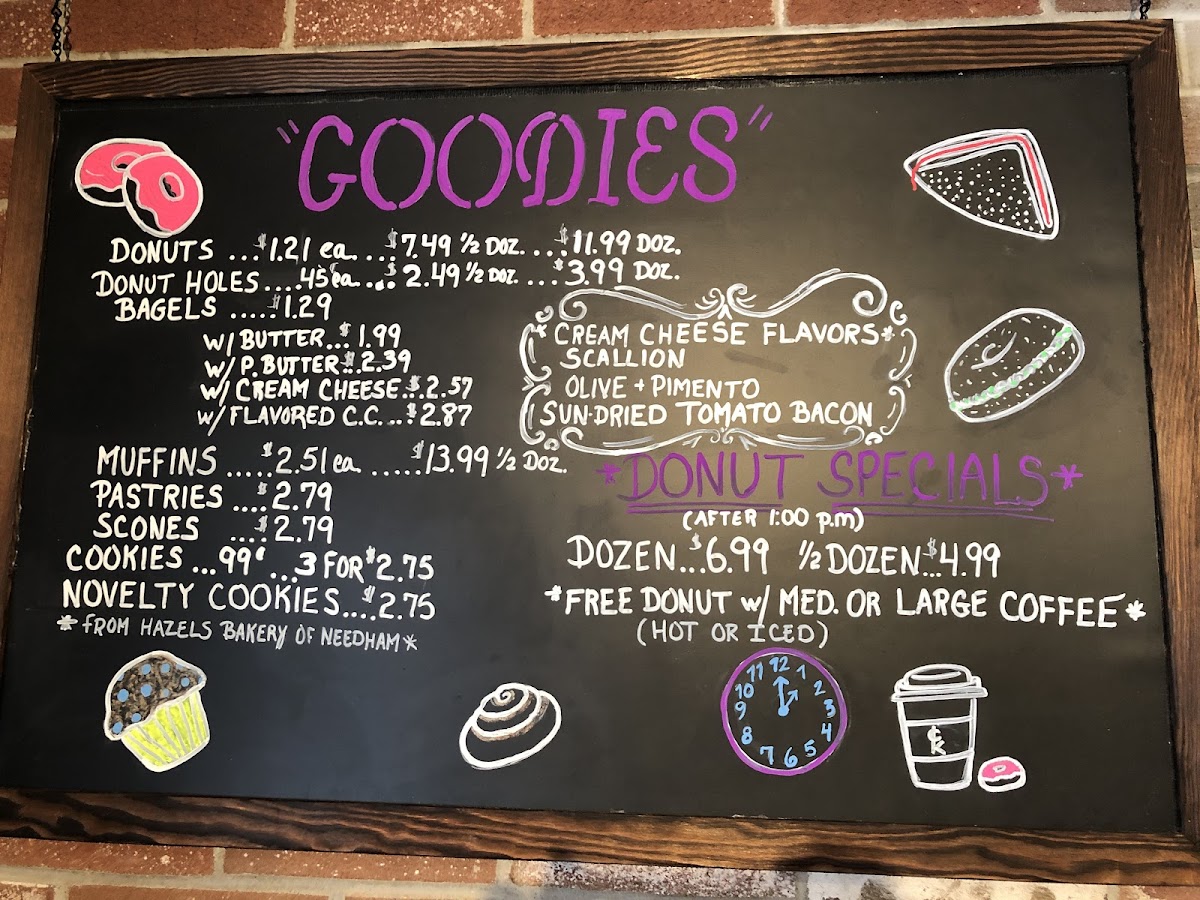 "GOODIES"
DONUTS ...$1.21 ea....$7.49 ½ DOZ....$11.99 DOZ.
DONUT HOLES....45¢ea....$2.49 ½ DOZ....$3.99 DOZ.
BAGELS .....$1.29
w/ BUTTER...$1.99
w/ P. BUTTER..$2.39
w/ CREAM CHEESE..$2.57
w/ FLAVORED C.C. ..$2.87
*CREAM CHEESE FLAVORS*
SCALLION
OLIVE + PIMENTO
SUN-DRIED TOMATO BACON
MUFFINS .....$2.51 ea .....$13.99 ½ DOZ.
PASTRIES ....$2.79
SCONES ....$2.79
COOKIES ...99¢...3 FOR $2.75
NOVELTY COOKIES....$2.75
*FROM HAZELS BAKERY OF NEEDHAM*
*DONUT SPECIALS*
(AFTER 1:00 p.m)
DOZEN...$6.99 ½ DOZEN...$4.99
*FREE DONUT w/ MED. OR LARGE COFFEE*
(HOT OR ICED)
12 1 2 3 4 5 6 7 8 9 10 11
CK